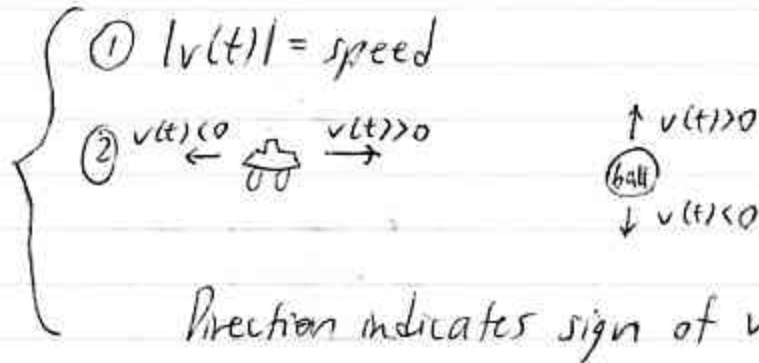 ① |v(t)| = speed
② v(t)<0 v(t)>0
↑ v(t)>0
ball
↓ v(t)<0
Direction indicates sign of v